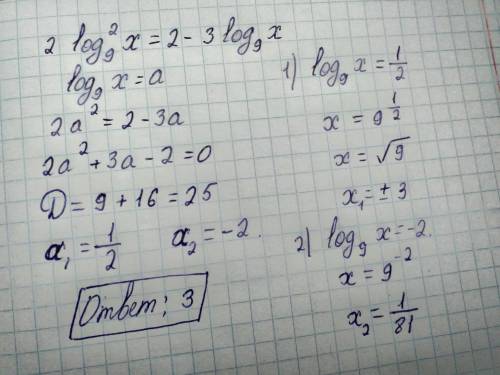 2 log₉² x = 2 - 3 log₉ x
log₉ x = a
2a² = 2 - 3a
2a² + 3a - 2 = 0
D = 9 + 16 = 25
a₁ = 1/2    a₂ = -2.
Ответ: 3
1) log₉ x = 1/2
x = 9^(1/2)
x = √9
x₁ = ± 3
2) log₉ x = -2.
x = 9⁻²
x₂ = 1/81